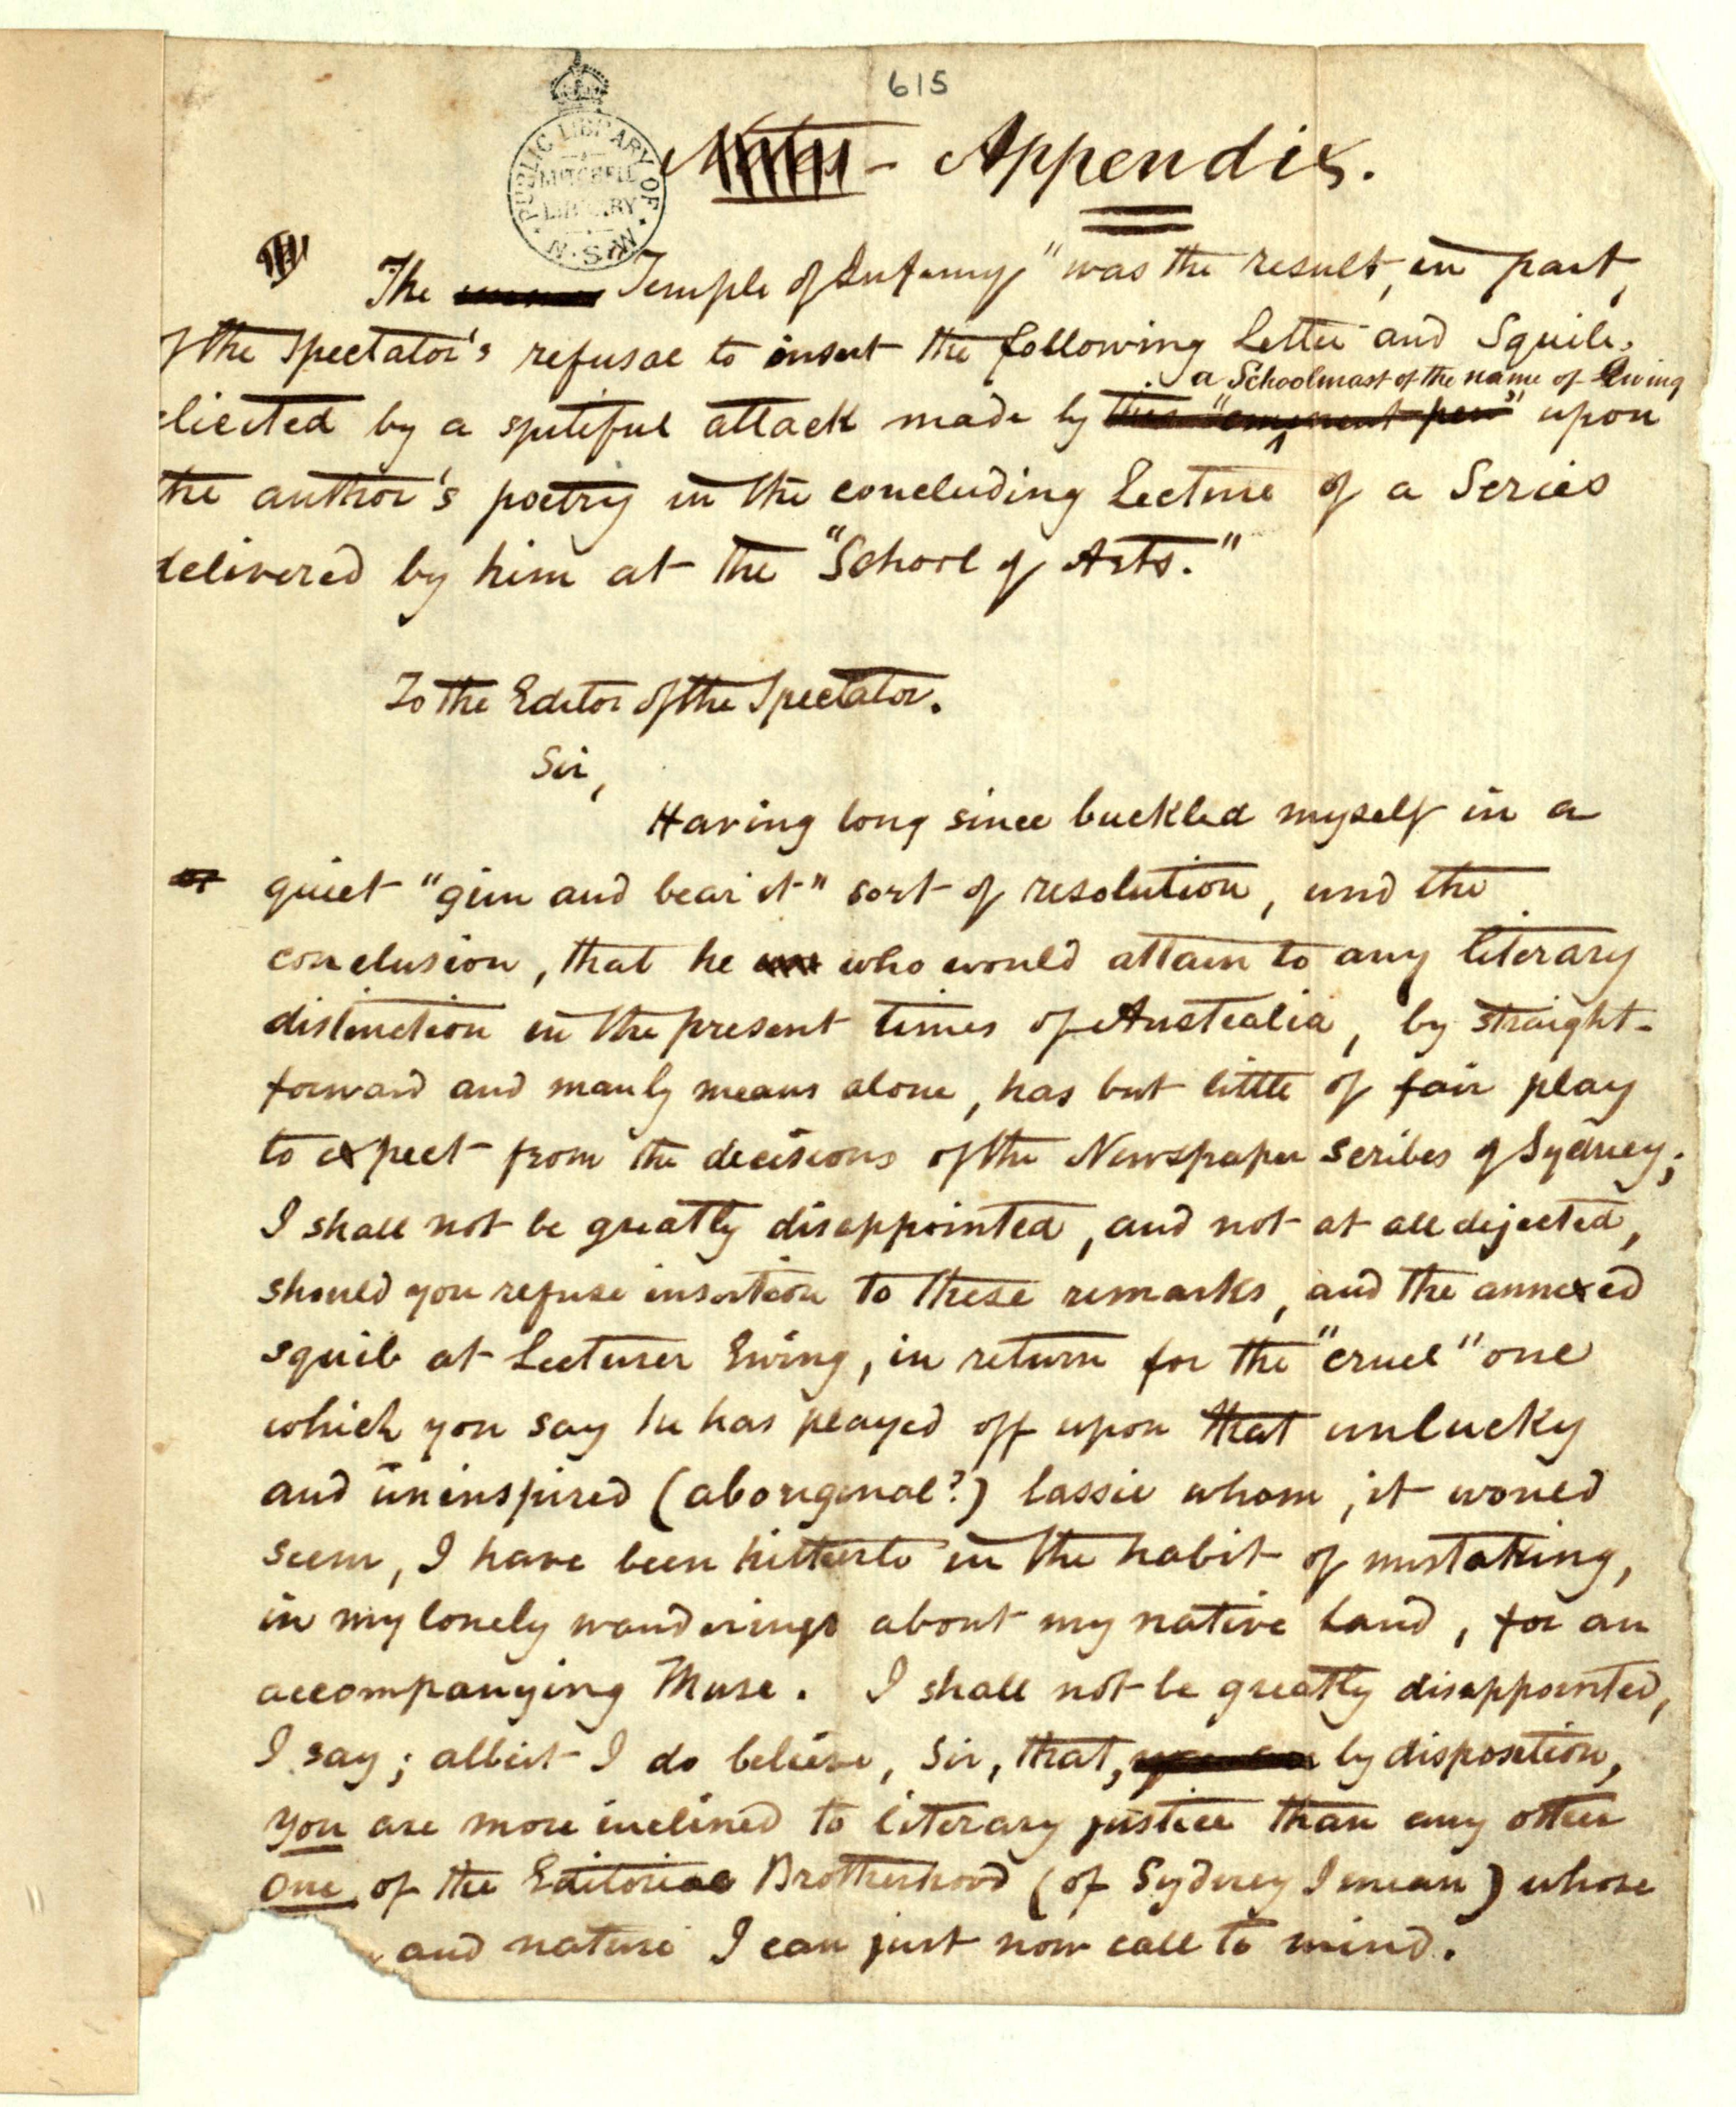 615
Notes - Appendix.
PUBLIC LIBRARY OF N.S.W.
MITCHELL LIBRARY
The Temple of Infamy" was the result, in part,
of the Spectator's refusal to insert the following Letter and Squib,
a Schoolmast of the name of Ewing
elicited by a spiteful attack made by this "eminent pen" upon
the author's poetry in the concluding Lecture of a Series
delivered by him at the "School of Arts."
To the Editor of the Spectator.
Sir,
Having long since buckled myself in a
or quiet "grin and bear it" sort of resolution, und the
conclusion, that he who would attain to any literary
distinction in the present times of Australia, by straight-
forward and manly means alone, has but little of fair play
to expect from the decisions of the Newspaper scribes of Sydney;
I shall not be greatly disappointed, and not at all dejected,
should you refuse insertion to these remarks, and the annexed
squib at Lecturer Ewing, in return for the "cruel" one
which you say he has played off upon that unlucky
and uninspired (aboriginal?) lassie whom, it would
seem, I have been hitherto in the habit of mistaking,
in my lonely wanderings about my native land, for an
accompanying Muse. I shall not be greatly disappointed,
I say; albeit I do believe, Sir, that, by disposition,
you are more inclined to literary justice than any other
one of the Editorial Brotherhood (of Sydney I mean) whose
and nature I can just now call to mind.